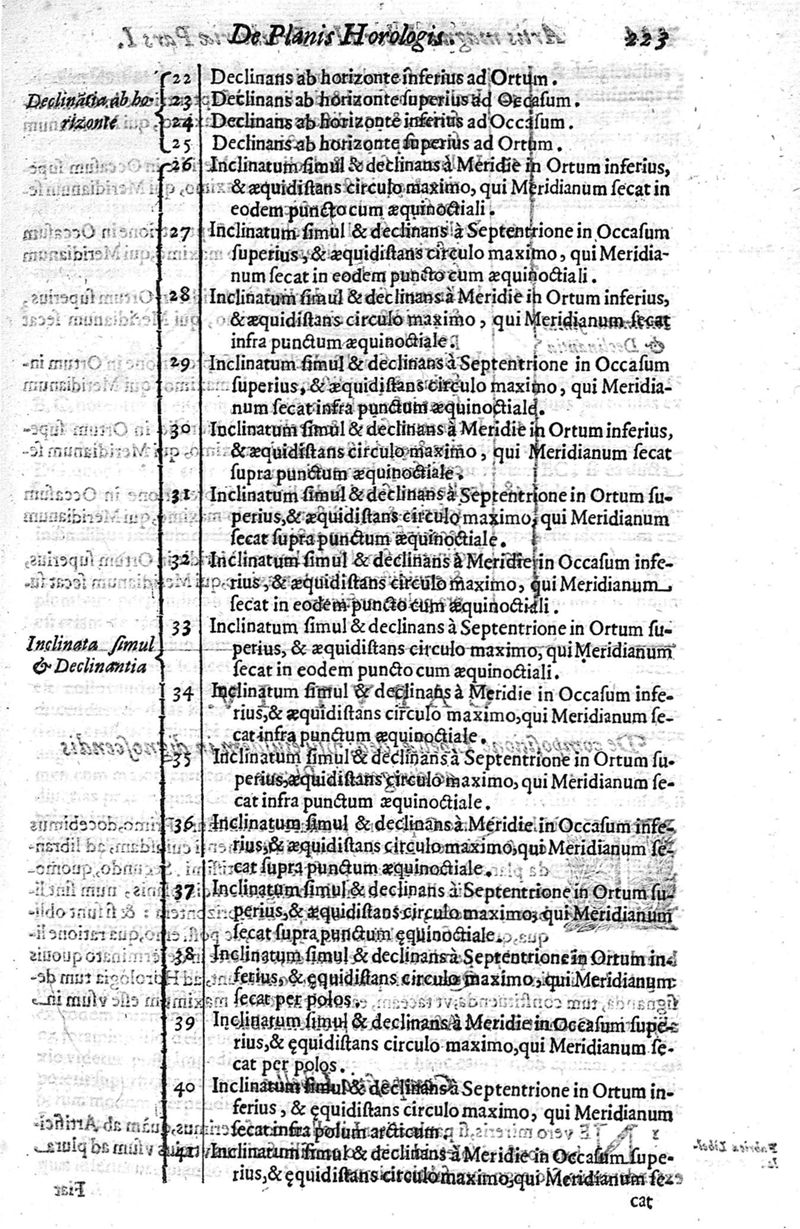 De Planis Horologis. 223
22 Declinans ab horizonte inferius ad Ortum.
Declinãtia ab ho- 23 Declinans ab horizonte superius ad Occasum.
rizonte 24 Declinans ab horizonte inferius ad Occasum.
25 Declinans ab horizonte superius ad Ortum.
26 Inclinatum simul & declinans à Meridie in Ortum inferius,
& æquidistans circulo maximo, qui Meridianum secat in
eodem puncto cum æquinoctiali.
27 Inclinatum simul & declinans à Septentrione in Occasum
superius, & æquidistans circulo maximo, qui Meridia-
num secat in eodem puncto cum æquinoctiali.
28 Inclinatum simul & declinans à Meridie in Ortum inferius,
& æquidistans circulo maximo, qui Meridianum secat
infra punctum æquinoctiale.
29 Inclinatum simul & declinans à Septentrione in Occasum
superius, & æquidistans circulo maximo, qui Meridia-
num secat infra punctum æquinoctiale.
30 Inclinatum simul & declinans à Meridie in Ortum inferius,
& æquidistans circulo maximo, qui Meridianum secat
supra punctum æquinoctiale.
31 Inclinatum simul & declinans à Septentrione in Ortum su-
perius, & æquidistans circulo maximo, qui Meridianum
secat supra punctum æquinoctiale.
32 Inclinatum simul & declinans à Meridie in Occasum infe-
rius, & æquidistans circulo maximo, qui Meridianum
secat in eodem puncto cum æquinoctiali.
33 Inclinatum simul & declinans à Septentrione in Ortum su-
Inclinata simul perius, & æquidistans circulo maximo, qui Meridianum
& Declinantia secat in eodem puncto cum æquinoctiali.
34 Inclinatum simul & declinans à Meridie in Occasum infe-
rius, & æquidistans circulo maximo, qui Meridianum se-
cat infra punctum æquinoctiale.
35 Inclinatum simul & declinans à Septentrione in Ortum su-
perius, æquidistans circulo maximo, qui Meridianum se-
cat infra punctum æquinoctiale.
36 Inclinatum simul & declinans à Meridie in Occasum infe-
rius, & æquidistans circulo maximo, qui Meridianum se-
cat supra punctum æquinoctiale.
37 Inclinatum simul & declinans à Septentrione in Ortum su-
perius, & æquidistans circulo maximo, qui Meridianum
secat supra punctum ęquinoctiale.
38 Inclinatum simul & declinans à Septentrione in Ortum in-
ferius, & ęquidistans circulo maximo, qui Meridianum
secat per polos.
39 Inclinatum simul & declinans à Meridie in Occasum supe-
rius, & ęquidistans circulo maximo, qui Meridianum se-
cat per polos.
40 Inclinatum simul & declinans à Septentrione in Ortum in-
ferius, & ęquidistans circulo maximo, qui Meridianum
secat infra polum arcticum.
41 Inclinatum simul & declinans à Meridie in Occasum supe-
rius, & ęquidistans circulo maximo, qui Meridianum se-
cat